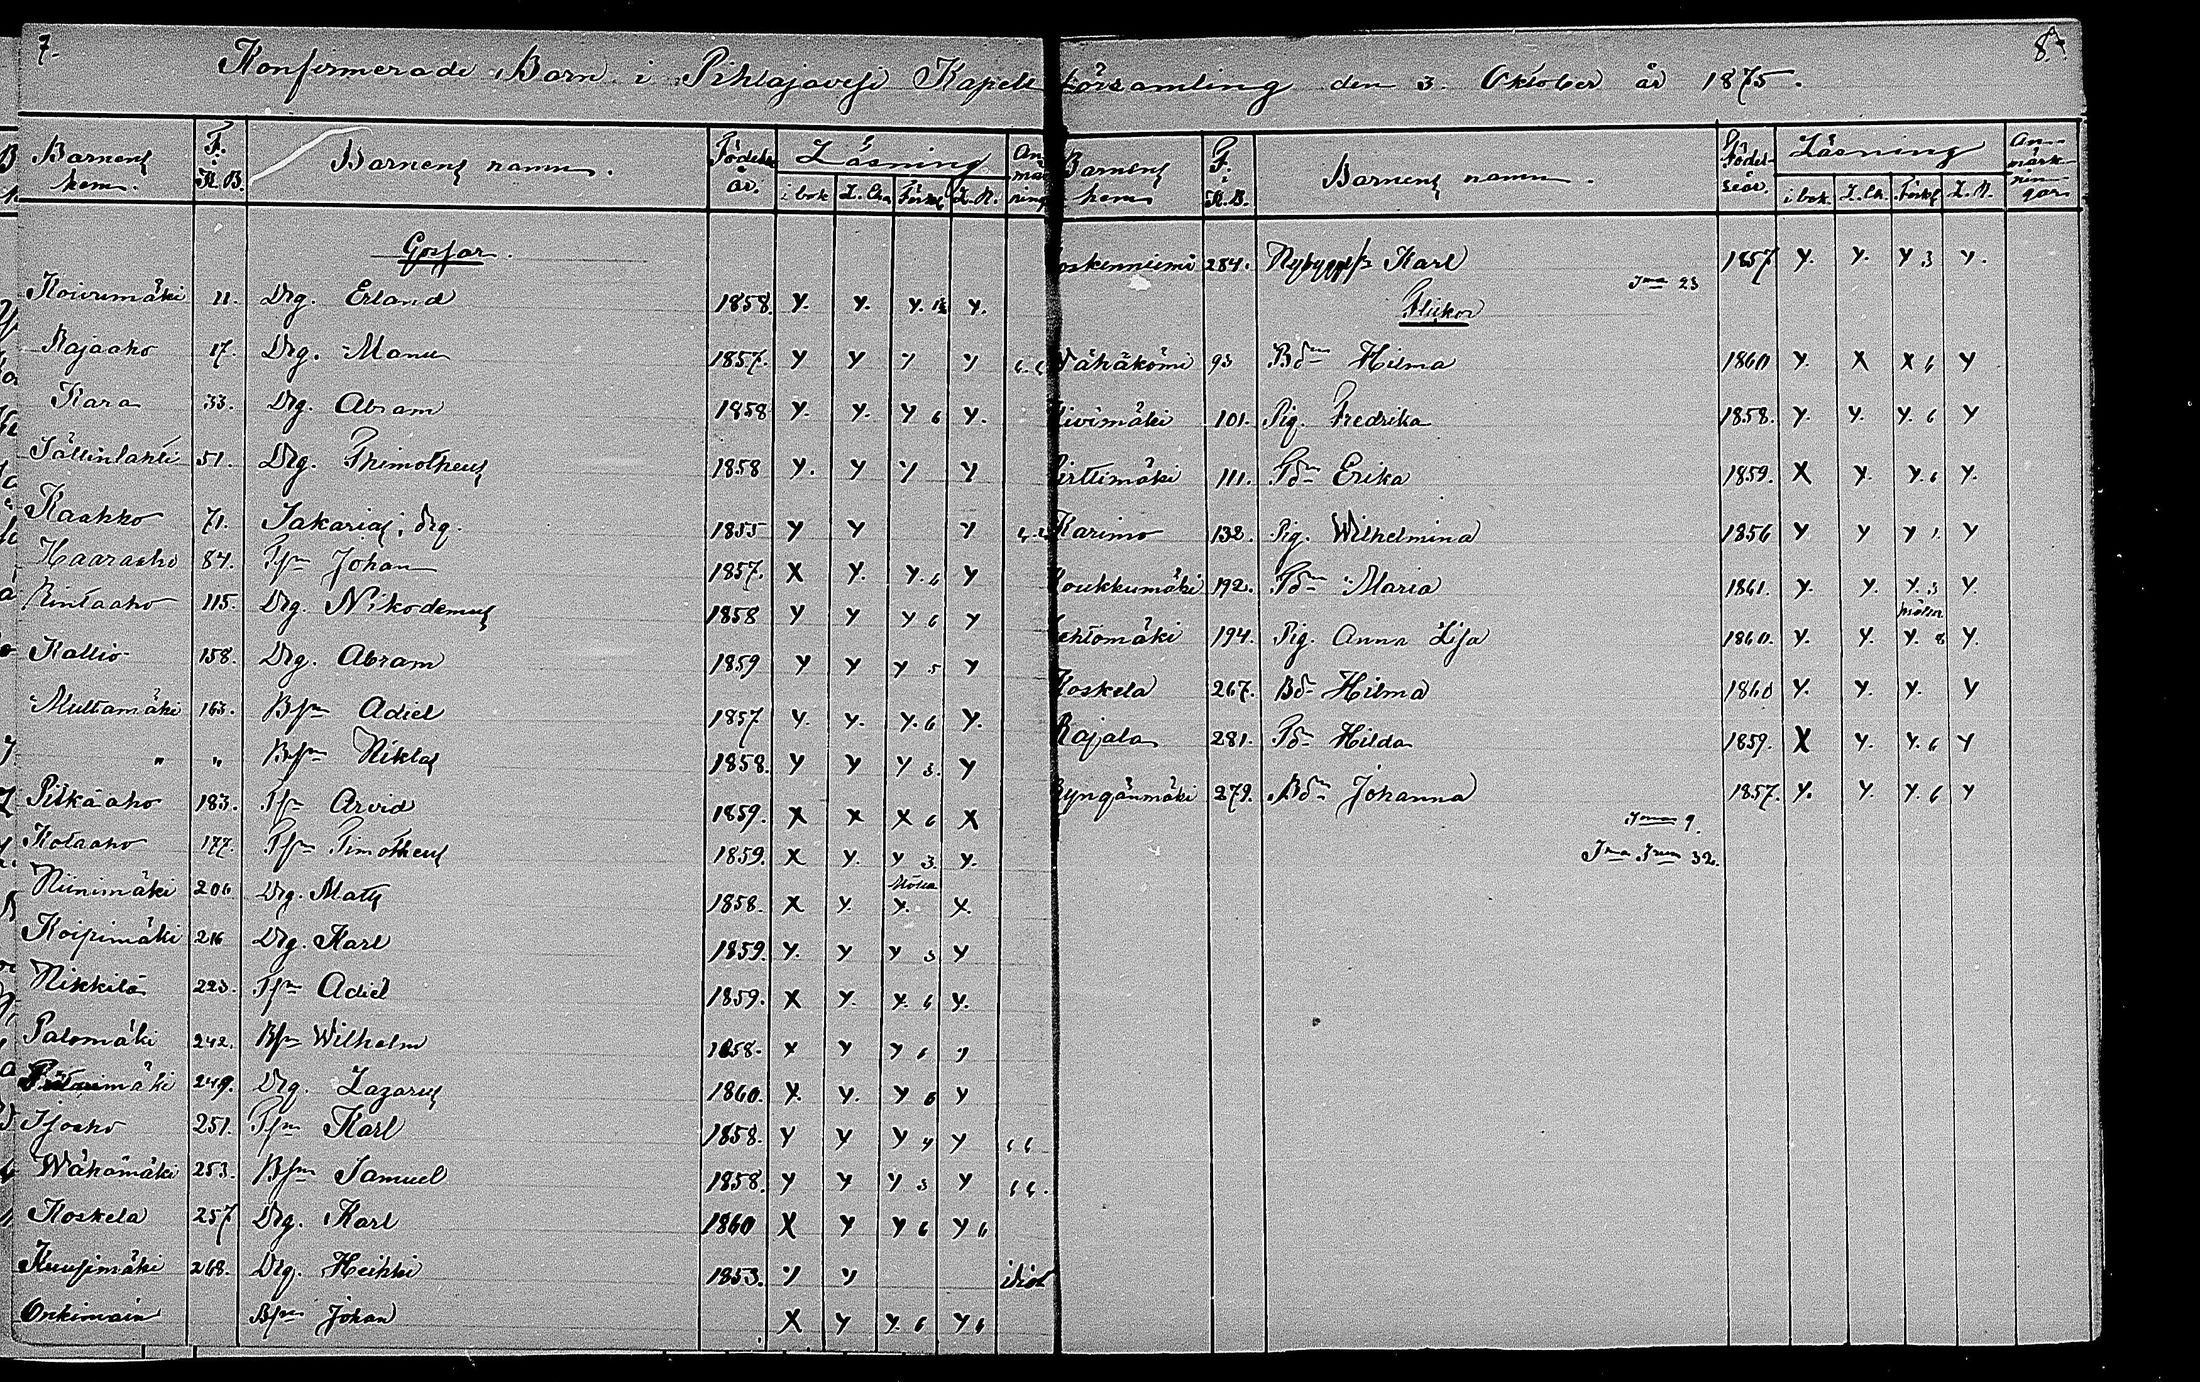 7.
Konfirmerade Barn i Pihlajavesi Kapell församling den 3 Oktober år 1875.
8.
Barnens hem. F. i K.B. Barnens namn. Födelse år. Läsning An- mär- ning
i bok L. Ch. Förkl L. N.
Gossar.
Koivumäki 11. Drg. Erland 1858. Y. Y. Y. Y.
Rajaaho 17. Drg. Manu 1857. Y Y Y Y
Kara 33. Drg. Abram 1858 Y. Y. Y 6 Y.
Jällinlahti 51. Drg. Thimotheus 1858 Y. Y Y Y
Kaakko 71. Sakarias, drg. 1855 Y Y Y
Haaraaho 84. Tsn Johan 1857. X Y. Y. 6 Y
Rintaaho 115. Drg. Nikodemus 1858 Y Y Y 6 Y
Kallio 158. Drg. Abram 1859 Y Y Y 5 Y
Multamäki 163. Bsn Adiel 1857 Y. Y. Y. 6 Y.
" " Bsn Niklas 1858. Y Y Y 3. Y
Pitkäaho 183. Tsn Arvid 1859. X X X 6 X
Kotaaho 177. Tsn Timotheus 1859. X Y. Y 3. Y.
Niinimäki 200. Drg. Mats 1858. X Y. Y. Y.
Koipimäki 216 Drg. Karl 1859. Y. Y Y 3 Y
Nikkilä 223. Tsn Adiel 1859. X Y. Y. 6 Y.
Palomäki 242. Bsn Wilhelm 1858. Y Y Y 6 Y
249. Drg. Lazarus 1860. Y. Y. Y 6 Y
Isoaho 251. Tsn Karl 1858. Y Y Y 4 Y
Wähämäki 253. Bsn Samuel 1858. Y Y Y 3 Y
Koskela 257 Drg. Karl 1860 X Y Y 6 Y 6
Kuusimäki 268. Drg. Heikki 1853. Y Y idiot
Onkimain Bsn Johan X Y Y. 6 Y 6
Barnens hem F. i K.B. Barnens namn. Födel- seår. Läsning An- märk- nin- gar.
i bok. L. Ch. Förkl L. N.
oskenniemi 284. Nybyggss Karl 1857 Y. Y. Y 3 Y.
Sma 23
Flickor
Wähäkömi 93 Bdn Hilma 1860 Y. X X 6 Y
ivimäki 101. Pig. Fredrika 1858. Y. Y. Y. 6 Y
irttimäki 111. Tdn Erika 1859. X Y. Y. 6 Y.
Karimo 132. Pig. Wilhelmina 1856 Y Y Y 1. Y
oukkumäki 192. Tdn Maria 1861. Y. Y. Y. 3 Y.
ehtomäki 194. Pig. Anna Lisa 1860. Y. Y. Y. 8 Y.
Koskela 267. Bdn Hilma 1860 Y. Y. Y. Y
Rajala 281. Tdn Hilda 1859. X Y. Y. 6 Y
yngänmäki 279. Bdn Johanna 1857. Y. Y. Y. 6 Y
Sma 9.
Sma Srum 32.